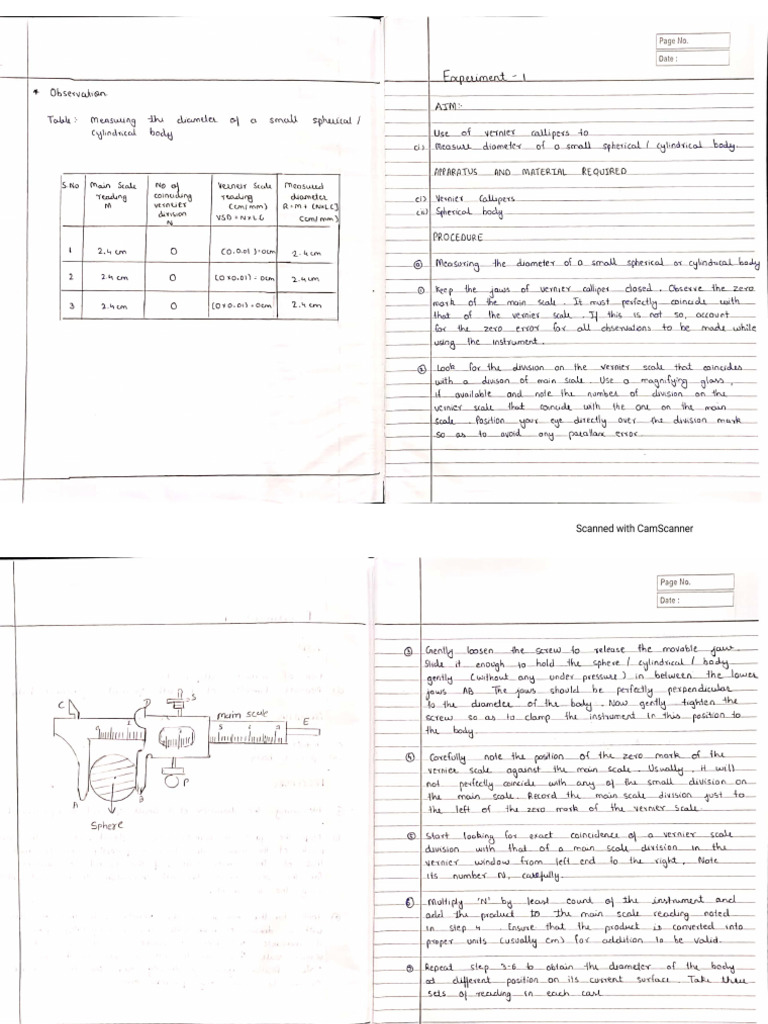 * Observation
Table: Measuring the diameter of a small spherical /
cylindrical body
S.No
Main Scale
reading
M
No of
coinciding
vernier
division
N
Vernier Scale
reading
(cm/mm)
VSD = N×LC
Measured
diameter
R=M+(N×LC)
(cm/mm)
1 2.4 cm 0 (0.0.01) = 0cm 2.4 cm
2 2.4 cm 0 (0×0.01) = 0cm 2.4 cm
3 2.4cm 0 (0×0.01) = 0cm 2.4 cm
Page No.
Date :
Experiment - 1
AIM:-
Use of vernier callipers to
(i) Measure diameter of a small spherical / cylindrical body.
APPARATUS AND MATERIAL REQUIRED
(i) Vernier Callipers
(ii) Spherical body
PROCEDURE
(a) Measuring the diameter of a small spherical or cylindrical body
① Keep the jaws of vernier calliper closed. Observe the zero
mark of the main scale. It must perfectly coincide with
that of the vernier scale. If this is not so, account
for the zero error for all observations to be made while
using the instrument.
② Look for the division on the vernier scale that coincides
with a divison of main scale. Use a magnifying glass,
if available and note the number of division on the
vernier scale that coincide with the one on the main
scale. Position your eye directly over the division mark
so as to avoid any parallax error.
Scanned with CamScanner
C
D
R
S
main scale
E
A
B
P
Sphere
Page No.
Date :
③ Gently loosen the screw to release the movable jaw.
Slide it enough to hold the sphere / cylindrical / body
gently (without any under pressure) in between the lower
jaws AB. The jaws should be perfectly perpendicular
to the diameter of the body. Now gently tighten the
screw so as to clamp the instrument in this position to
the body.
④ Carefully note the position of the zero mark of the
vernier scale against the main scale. Usually, it will
not perfectly coincide with any of the small division on
the main scale. Record the main scale division just to
the left of the zero mark of the vernier scale.
⑤ Start looking for exact coincidence of a vernier scale
division with that of a main scale division in the
vernier window from left end to the right, Note
its number N, carefully.
⑥ Multiply 'N' by least count of the instrument and
add the product to the main scale reading noted
in step 4. Ensure that the product is converted into
proper units (usually cm) for addition to be valid.
⑦ Repeat step 3-6 to obtain the diameter of the body
at different position on its current surface. Take three
sets of reading in each case